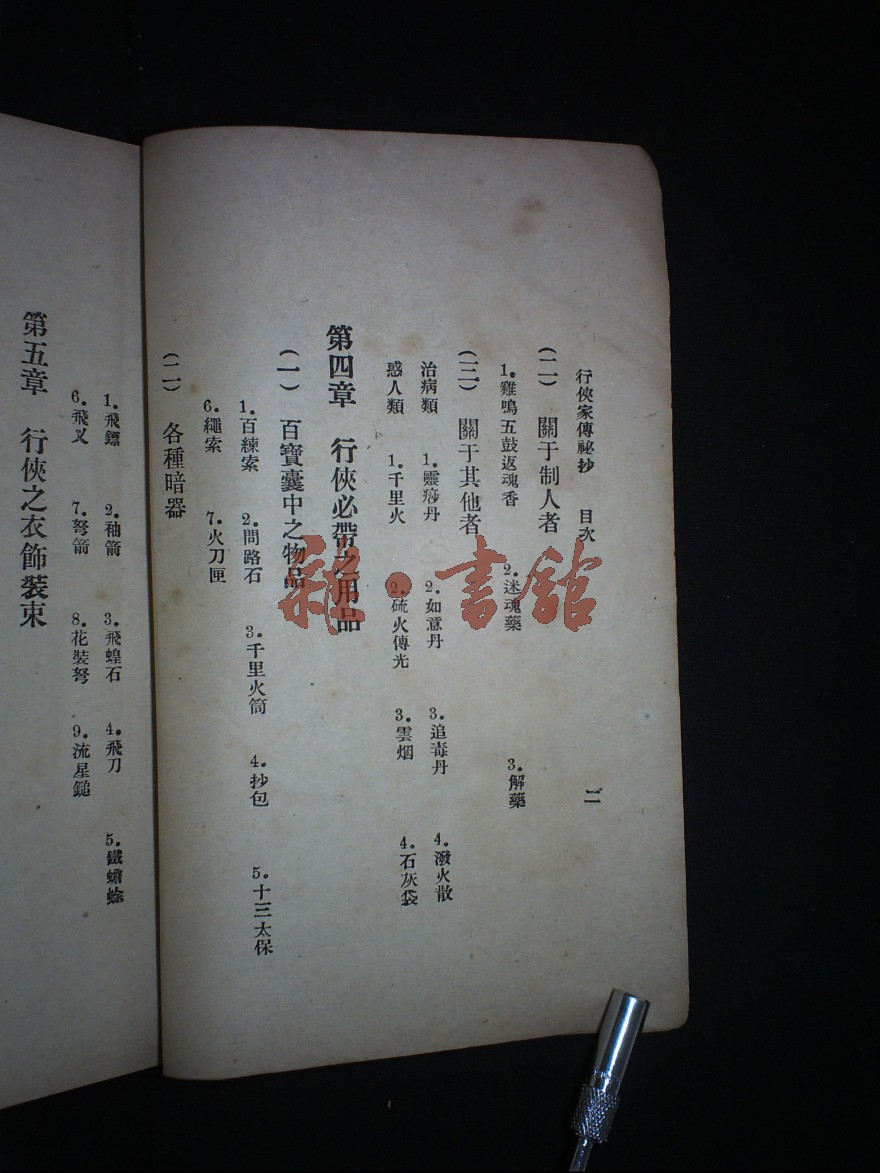 行俠家傳祕抄 目次 二
(二) 關于制人者
1.雞鳴五鼓返魂香 2.迷魂藥 3.解藥
(三) 關于其他者
治病類 1.靈痧丹 2.如意丹 3.追毒丹 4.潑火散
惑人類 1.千里火 2.硫火傳光 3.雲烟 4.石灰袋
第四章 行俠必帶之用品
(一) 百寶囊中之物品
1.百練索 2.問路石 3.千里火筒 4.抄包 5.十三太保
6.繩索 7.火刀匣
(二) 各種暗器
1.飛鏢 2.袖箭 3.飛蝗石 4.飛刀 5.鐵蟾蜍
6.飛叉 7.弩箭 8.花裝弩 9.流星鎚
第五章 行俠之衣飾裝束
雜·書館